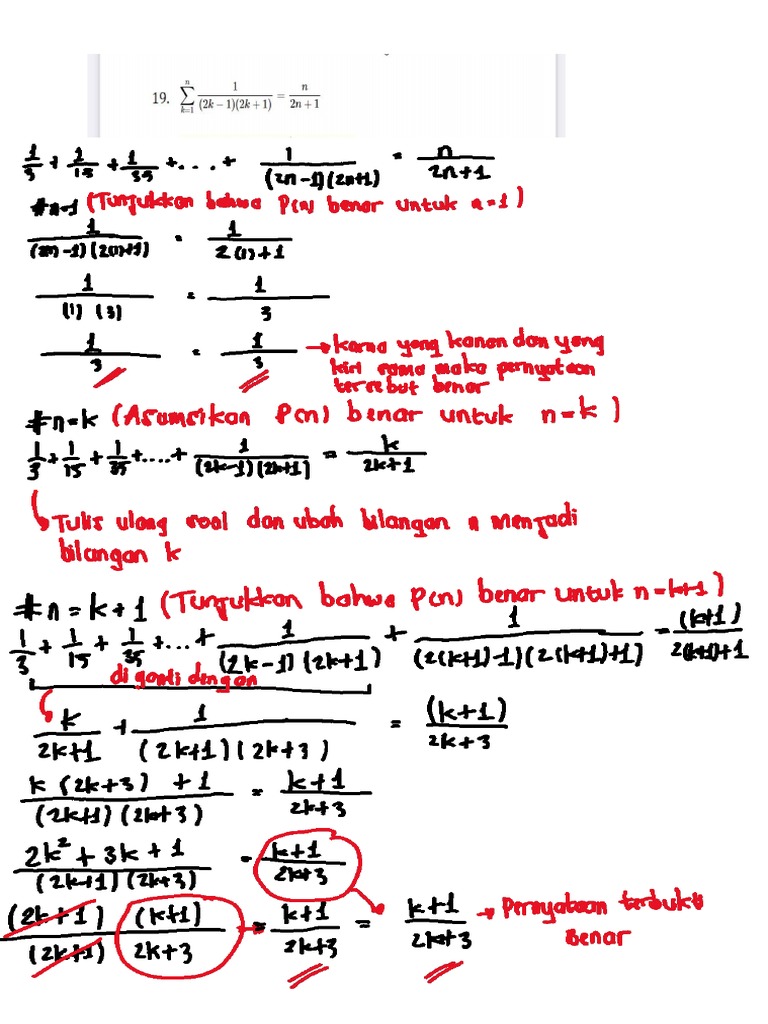 19. \sum_{k=1}^{n} \frac{1}{(2k-1)(2k+1)} = \frac{n}{2n+1}
\frac{1}{3} + \frac{1}{15} + \frac{1}{35} + ... + \frac{1}{(2n-1)(2n+1)} = \frac{n}{2n+1}
#n=1 (Tunjukkan bahwa P(n) benar untuk n=1)
\frac{1}{(2(1)-1)(2(1)+1)} = \frac{1}{2(1)+1}
\frac{1}{(1)(3)} = \frac{1}{3}
\frac{1}{3} = \frac{1}{3} → karna yang kanan dan yang
kiri sama maka pernyataan
tersebut benar
#n=k (Asumsikan P(n) benar untuk n=k)
\frac{1}{3} + \frac{1}{15} + \frac{1}{35} + .... + \frac{1}{(2k-1)(2k+1)} = \frac{k}{2k+1}
Tulis ulang soal dan ubah bilangan n menjadi
bilangan k
#n=k+1 (Tunjukkan bahwa P(n) benar untuk n=k+1)
\frac{1}{3} + \frac{1}{15} + \frac{1}{35} + ... + \frac{1}{(2k-1)(2k+1)} + \frac{1}{(2(k+1)-1)(2(k+1)+1)} = \frac{(k+1)}{2(k+1)+1}
di ganti dengan
\frac{k}{2k+1} + \frac{1}{(2k+1)(2k+3)} = \frac{(k+1)}{2k+3}
\frac{k(2k+3)+1}{(2k+1)(2k+3)} = \frac{k+1}{2k+3}
\frac{2k^2+3k+1}{(2k+1)(2k+3)} = \frac{k+1}{2k+3}
\frac{(2k+1)(k+1)}{(2k+1) 2k+3} = \frac{k+1}{2k+3} = \frac{k+1}{2k+3} → Pernyataan terbukti
Benar